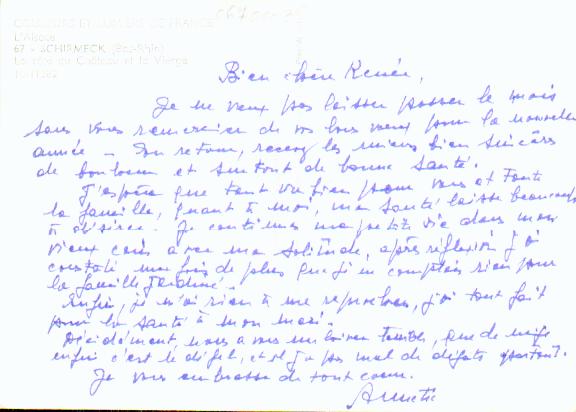 COULEURS ET LUMIÈRE DE FRANCE
L'Alsace
67 - SCHIRMECK (Bas-Rhin)
La côte du Château et la Vierge
Bien chère Renée,
Je ne veux pas laisser passer le mois
sans vous remercier de vos bons vœux pour la nouvelle
année - En retour, recevez les miens bien sincères
de bonheur et surtout de bonne santé.
J'espère que tout va bien pour vous et toute
la famille, quant à moi, ma santé laisse beaucoup
à désirer. Je continue ma petite vie dans mon
vieux coin avec ma solitude, après réflexion j'ai
constaté une fois de plus que je ne comptais rien pour
la famille
Enfin, je n'ai rien à me reprocher, j'ai tout fait
pour la santé à mon mari.
Décidément, nous avons un hiver terrible, que de neige
enfin c'est le dégel, et il y a pas mal de dégâts partout.
Je vous embrasse de tout cœur.
Annette